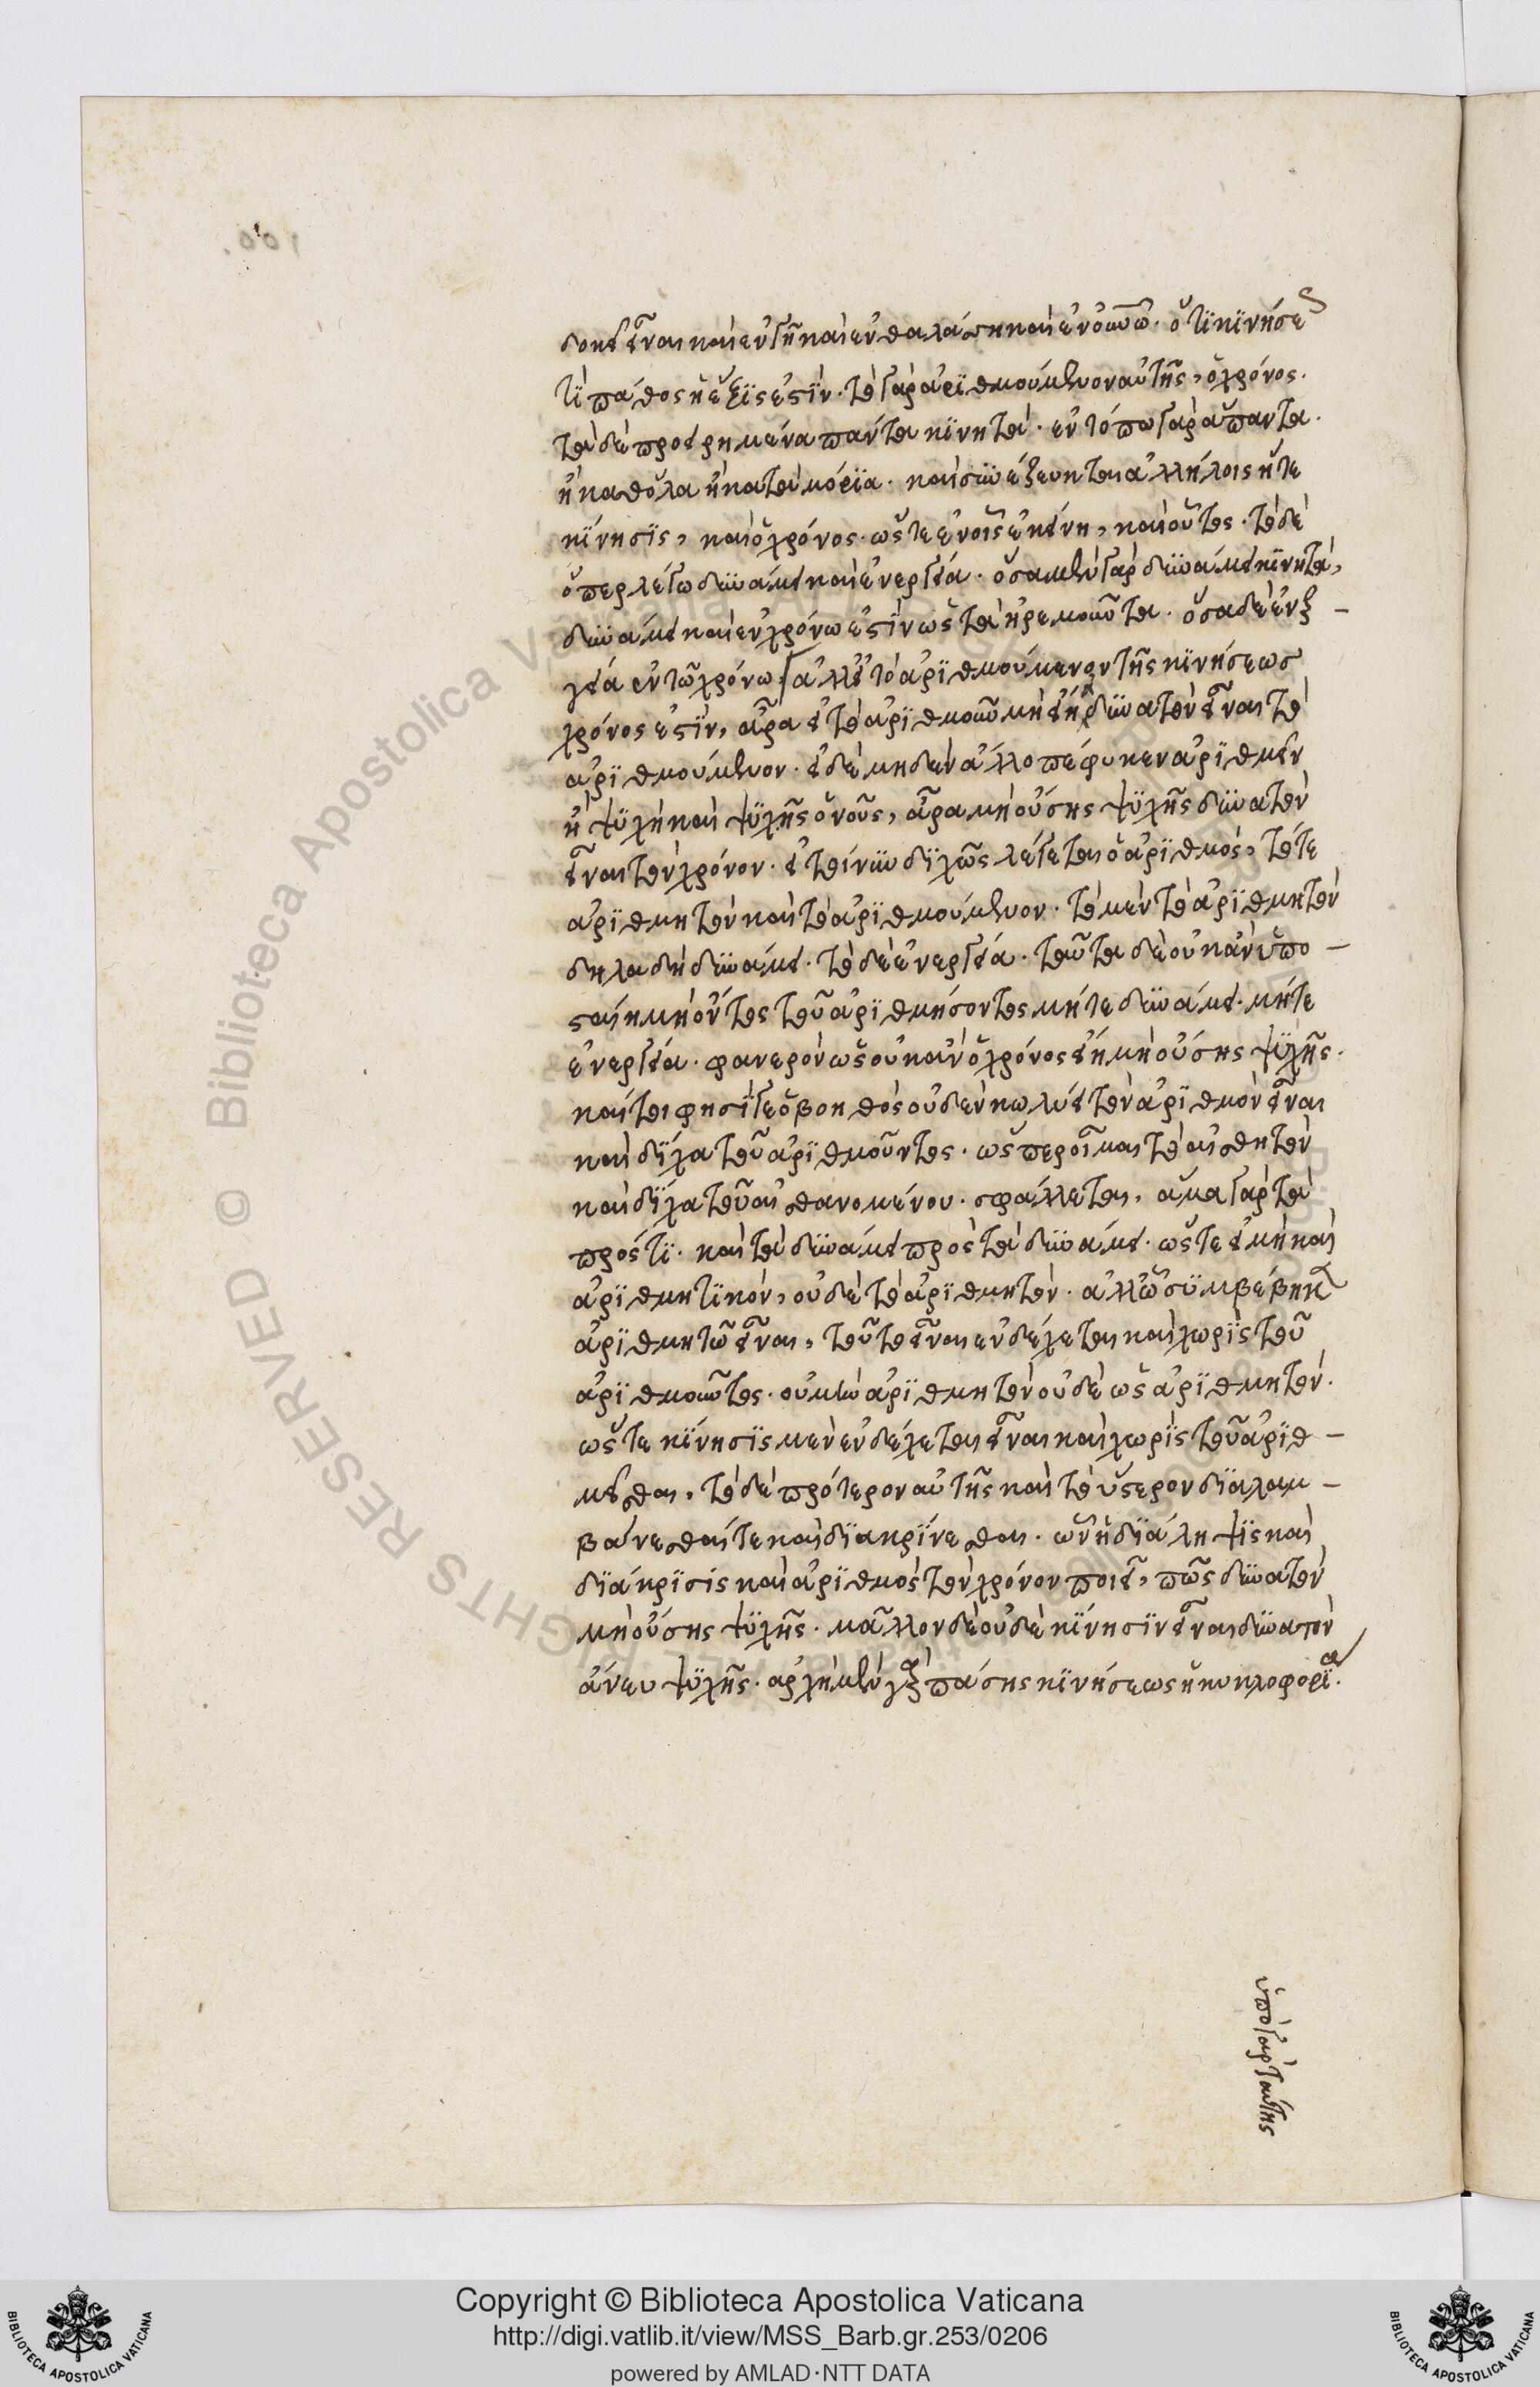 δοκεῖ εἶναι καὶ ἐν γῆ καὶ ἐν θαλάσση καὶ ἐν οὐνῶ. ὅτι κινήσεως
τὶ πάθος ἢ ἕξις ἐστίν. τὸ γὰρ ἀριθμούμενον αὐτῆς, ὁ χρόνος.
τὰ δὲ προειρημένα πάντα κινητά. ἐν τόπω γὰρ ἅπαντα.
ἢ καθόλα ἢ κατὰ μόρια. καὶ συνέζευκται ἀλλήλοις ἥτε
κίνησις, καὶ ὁ χρόνος. ὥστε ἐν οἷς ἐκείνη, καὶ οὗτος. τὸ δὲ
ὅπερ λέγω δυνάμει καὶ ἐνεργεία. ὅσα μὲν γὰρ δυνάμει κινητά,
δυνάμει καὶ ἐν χρόνω ἐστὶν ὡς τὰ ἠρεμοῦντα. ὅσα δὲ ἐνερ–
γεία ἐν τῶ χρόνω. ἀλλ' εἰ τὸ ἀριθμούμενον τῆς κινήσεως
χρόνος ἐστίν, ἆρα εἰ τὸ ἀριθμοῦν μὴ εἴη δυνατὸν εἶναι τὸ
ἀριθμούμενον. εἰ δὲ μηδὲν ἄλλο πέφυκεν ἀριθμεῖν
ἢ ψυχὴ καὶ ψυχῆς ὁ νοῦς, ἆρα μὴ οὔσης ψυχῆς δυνατὸν
εἶναι τὸν χρόνον. εἰ τοίνυν διχῶς λέγεται ὁ ἀριθμός, τότε
ἀριθμητὸν καὶ τὸ ἀριθμούμενον. τὸ μὲν τὸ ἀριθμητὸν
δηλαδὴ δυνάμει. τὸ δὲ ἐνεργεία. ταῦτα δὲ οὐκ ἂν ὑπο–
σταίη μὴ ὄντος τοῦ ἀριθμήσοντος μήτε δυνάμει. μήτε
ἐνεργεία. φανερὸν ὡς οὐκ ἂν ὁ χρόνος εἴη μὴ οὔσης ψυχῆς.
καί τοι φησί γε ὁ βοηθὸς οὐδὲν κωλύει τὸν ἀριθμὸν εἶναι
καὶ δίχα τοῦ ἀριθμοῦντος. ὥσπερ οἶμαι τὸ αἰσθητὸν
καὶ δίχα τοῦ αἰσθανομένου. σφάλλεται, ἅμα γὰρ τὰ
πρόστι. καὶ τὰ δυνάμει πρὸς τὰ δυνάμει. ὥστε εἰ μὴ καὶ
ἀριθμητικόν, οὐδὲ τὸ ἀριθμητόν. ἀλλ' ὧ συμβέβηκεν
ἀριθμητῶ εἶναι, τοῦτο εἶναι ἐνδέχεται καὶ χωρὶς τοῦ
ἀριθμοῦντος. οὐ μὴν ἀριθμητὸν οὐδὲ ὡς ἀριθμητόν.
ὥστε κίνησις μὲν ἐνδέχεται εἶναι καὶ χωρὶς τοῦ ἀριθ–
μεῖσθαι, τὸ δὲ πρότερον αὐτῆς καὶ τὸ ὕστερον διαλαμ–
βάνεσθαί τε καὶ διακρίνεσθαι. ὧν ἡ διάληψις καὶ
διάκρισις καὶ ἀριθμὸς τὸν χρόνον ποιεῖ, πῶς δυνατὸν
μὴ οὔσης ψυχῆς. μᾶλλον δὲ οὐδὲ κίνησιν εἶναι δυνατὸν
ἄνευ ψυχῆς. ἀρχὴ μὲν γὰρ πάσης κινήσεως ἡ κυκλοφορία.
ὑπὸ γὰρ ταύτης
Copyright © Biblioteca Apostolica Vaticana
http://digi.vatlib.it/view/MSS_Barb.gr.253/0206
powered by AMLAD·NTT DATA